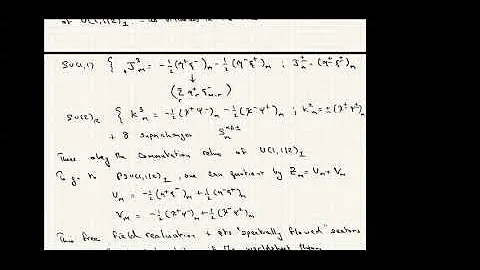 of U(1,1|2)_1
SU(1,1) { J^3_m = -1/2 (η^+ξ^-)_m - 1/2 (η^-ξ^+)_m ; J^±_m = (η^±ξ^±)_m
↓
(Σ_r η^+_r ξ^-_{m-r})
SU(2) { K^3_m = -1/2 (χ^+ψ^-)_m - 1/2 (χ^-ψ^+)_m ; K^±_m = ± (χ^±ψ^±)_m
+ 8 supercharges S^{αβ±}_m
These obey the commutation relns of U(1,1|2)_1
To go to PSU(1,1|2)_1, one can quotient by Z_m = U_m + V_m
U_m = -1/2 (η^+ξ^-)_m + 1/2 (η^-ξ^+)_m
V_m = -1/2 (χ^+ψ^-)_m + 1/2 (χ^-ψ^+)_m
This free field realisation + its "spectrally flowed" sectors
the worldsheet theory